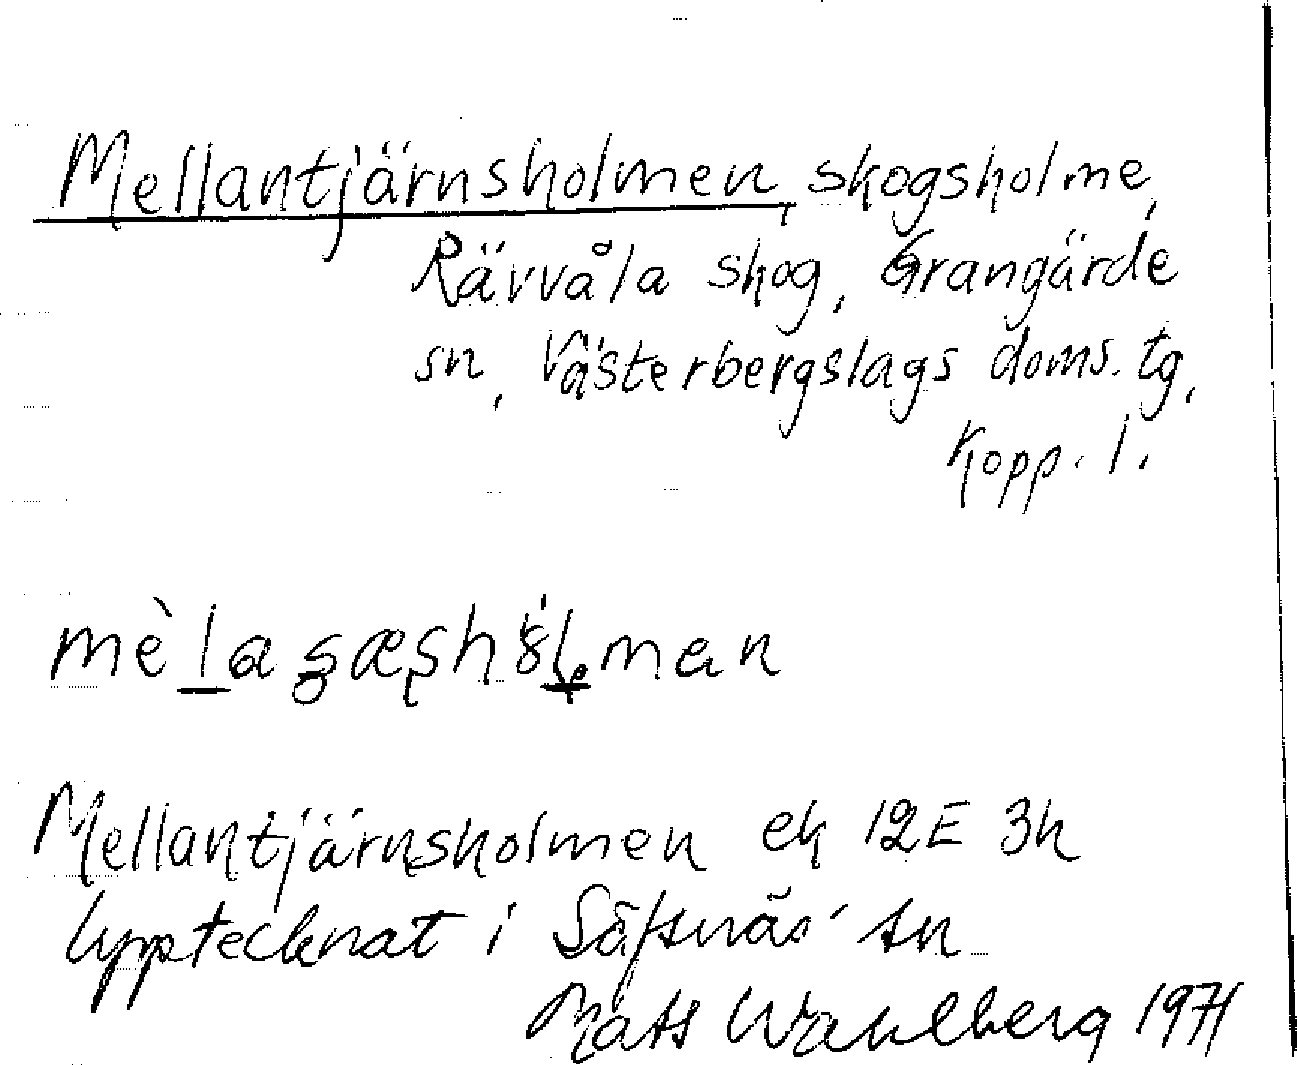 Mellantjärnsholmen, skogsholme,
Rävvåla skog, Grangärde
sn, Västerbergslags doms. tg,
Kopp. l.
Mellantjärnsholmen ek 12E 3h
Upptecknat i Säfsnäs sn
Mats Wahlberg 1971